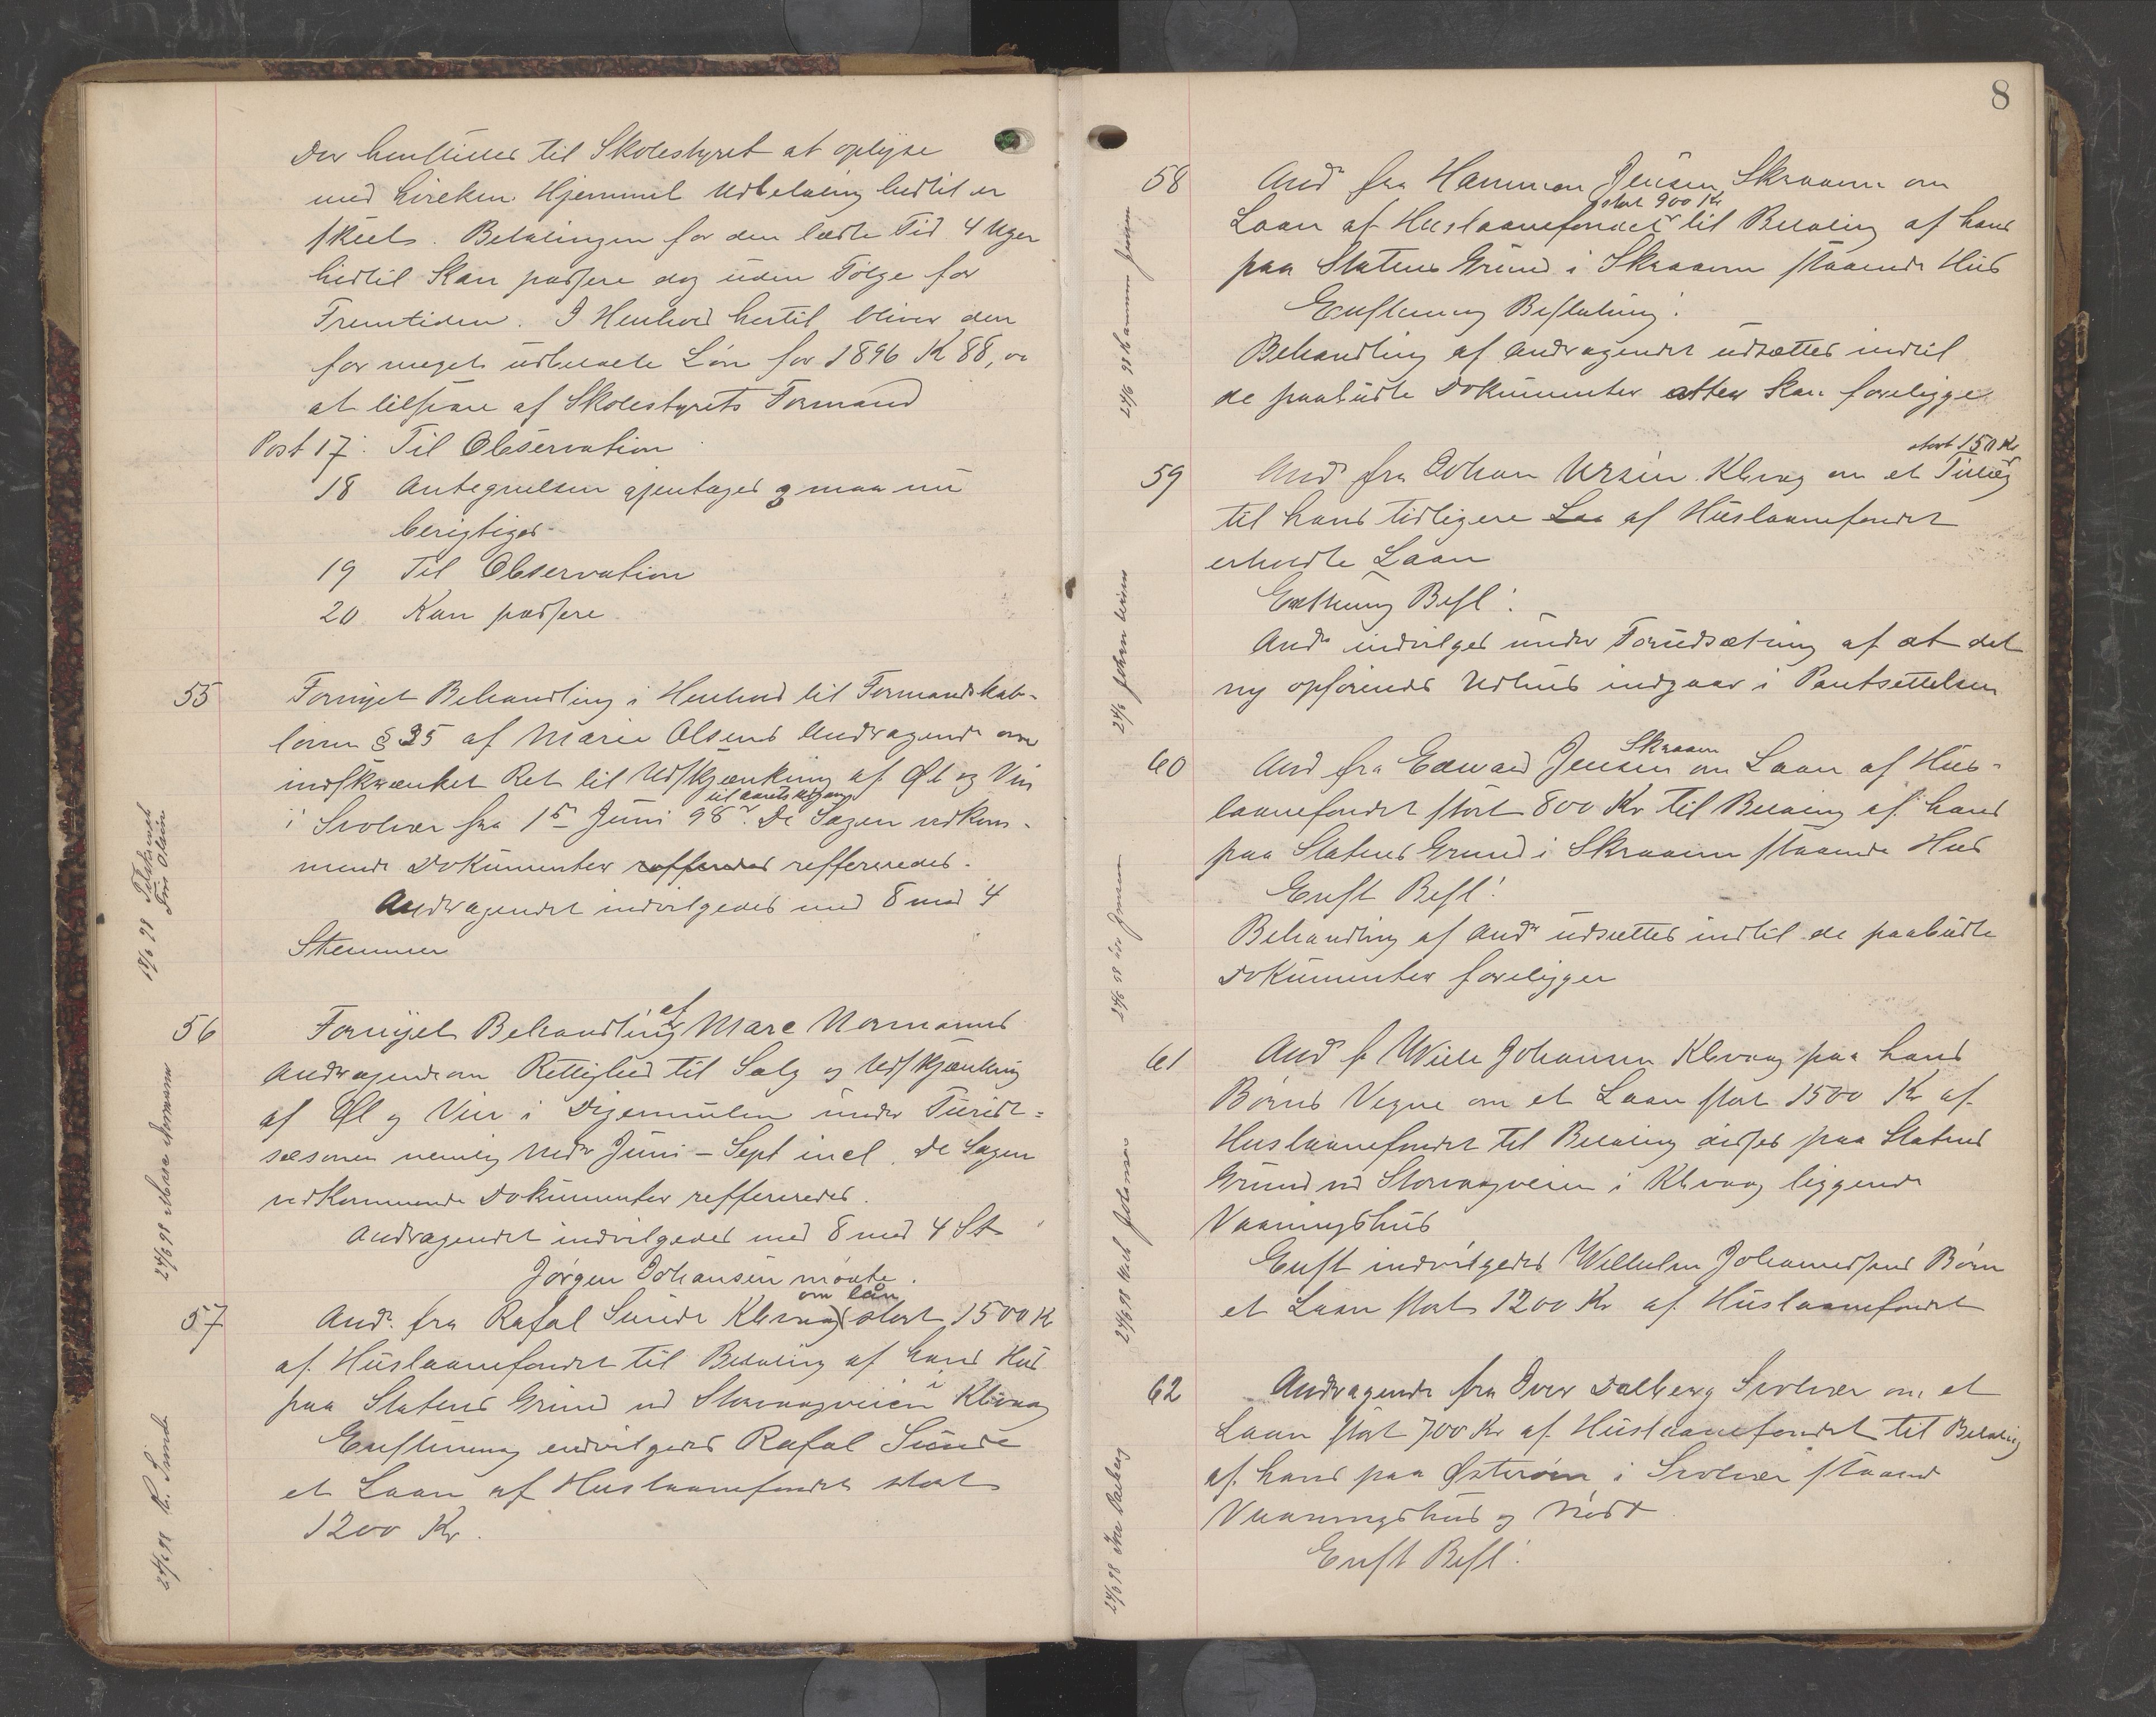 Der henstilles til Skolestyret at oplyse
med hvilken Hjemmel Udbetaling hidtil er
skeet. Betalingen for den lædte Tid 4 Uger
hidtil kan passere dog uden Følge for
Fremtiden. I Henhold hertil bliver den
for meget udbetalte Løn for 1896 Kr 88,00
at tilsvare af Skolestyrets Formand
Post 17. Til Observation
18 Antegnelsen gjentages og maa nu
berigtiges
19 Til Observation
20 Kan passere
55 Fornyet Behandling i Henhold til Formandskab-
loven § 35 af Marie Olsens Andragende om
indskrænket Ret til Udskjænkning af Øl og Vin
til Aarets Udgang
i Svolvær fra 1ste Juni 98. De Sagen vedkom-
mende Dokumenter refferedes reffereredes.
Andragendet indvilgedes med 8 mod 4
Stemmer
18/6 98 Tilskrevet
Frk Olsen
56 Fornyet Behandling af Mare Normanns
Andragende om Rettighed til Salg og Udskjænkning
af Øl og Vin i Digermulen under Turist-
sæsonen nemlig Medio Juni - Sept incl. De Sagen
vedkommende Dokumenter reffereredes.
Andragendet indvilgedes med 8 mod 4 St
24/6 98 Mare Normann
Jørgen Johansen mødte.
om lån
57 And. fra Rafal Sunde Kbvaag stort 1500 Kr
af Huslaanefondet til Betaling af hans Hus
paa Statens Grund ved Storvaagveien i Kbvaag
Enstemmig indvilgedes Rafal Sunde
et Laan af Huslaanefondet stort
1200 Kr.
24/6 98 R. Sunde
8
58 And fra Hammon Jensen Skraaven om
stort 900 Kr
Laan af Huslaanefondet til Betaling af hans
paa Statens Grund i Skraaven staaende Hus
Enstemmig Beslutning:
Behandling af Andragendet udsættes indtil
de paabudte Dokumenter atter kan foreligge
24/6 98 Hammon Jensen
stort 150 Kr
59 And fra Johan Ursin Kbvaag om et Tillæg
til hans tidligere Laa af Huslaanefondet
erholdte Laan
Enstemmig Besl:
And indvilges under Forudsætning af at det
ny opførende Udhus indgaar i Pantsettelsen
24/6 Johan Ursin
Skraaven
60 And fra Edward Jensen om Laan af Hus-
laanefondet stort 800 Kr til Betaling af hans
paa Statens Grund i Skraaven staaende Hus
Enst Besl:
Behandling af And udsættes indtil de paabudte
Dokumenter foreligger
24/6 98 Jensen
61 And fr Wilh Johansen Kbvaag paa hans
Børns Vegne om et Laan stort 1500 Kr af
Huslaanefondet til Betaling disses paa Statens
Grund ved Storvaagveien i Kbvaag liggende
Vaaningshus
Enst indvilgedes Wilhelm Johannessens Børn
et Laan stort 1200 Kr af Huslaanefondet
24/6 98 Wilh Johansen
62 Andragende fra Iver Dalberg Svolvær om et
Laan stort 700 Kr af Huslaanefondet til Betaling
af hans paa Østerøen i Svolvær staaende
Vaaningshus og Nøst
Enst Besl:
24/6 98 Iver Dalberg